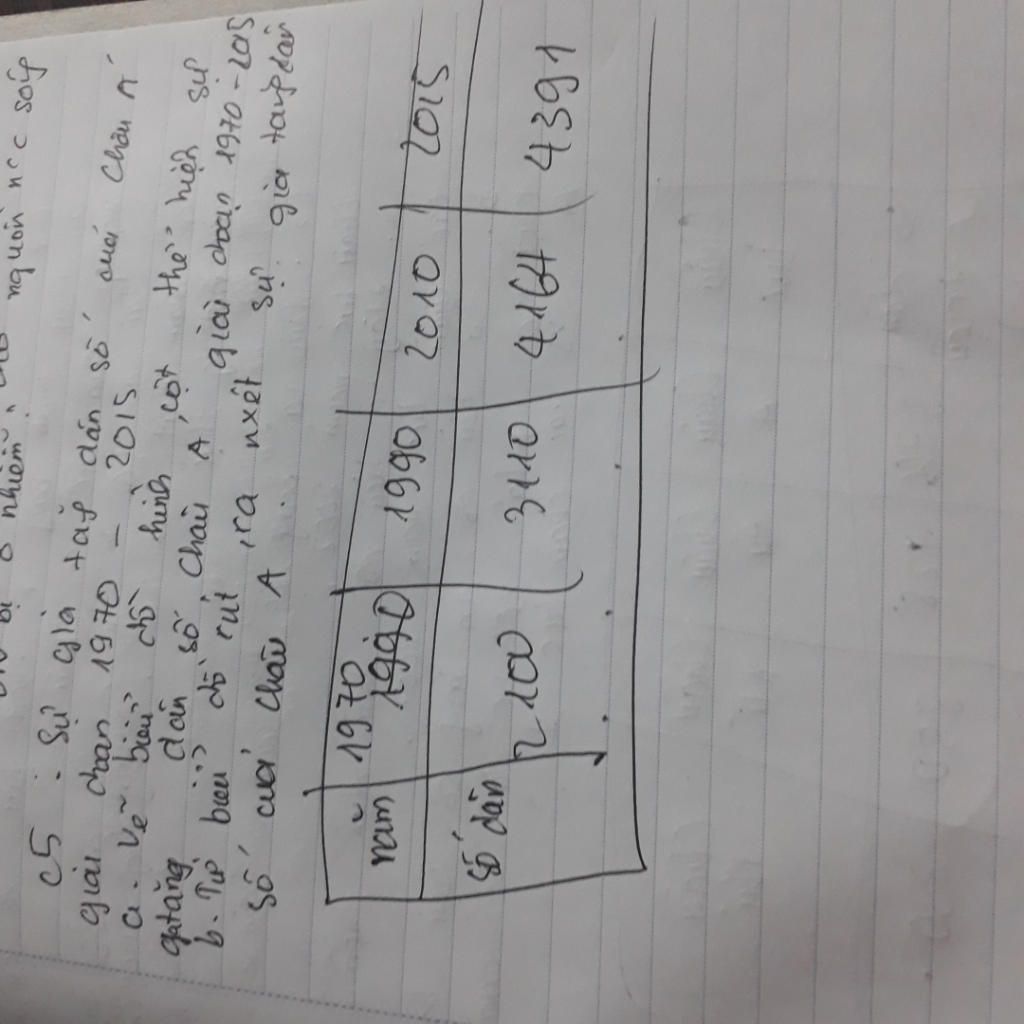 bị ô nhiễm, nguồn nc sống
C5 : Sự gia tăg dân số của Châu Á
giai đoạn 1970 - 2015
a. Vẽ biểu đồ hình cột thể hiện sự
gtăng dân số Châu Á giai đoạn 1970-2015
b. Từ biểu đồ rút ra nxét sự gia tang dân
số của Châu Á.
năm 1970 1990 1990 2010 2015
số dân 2100 3110 4164 4391